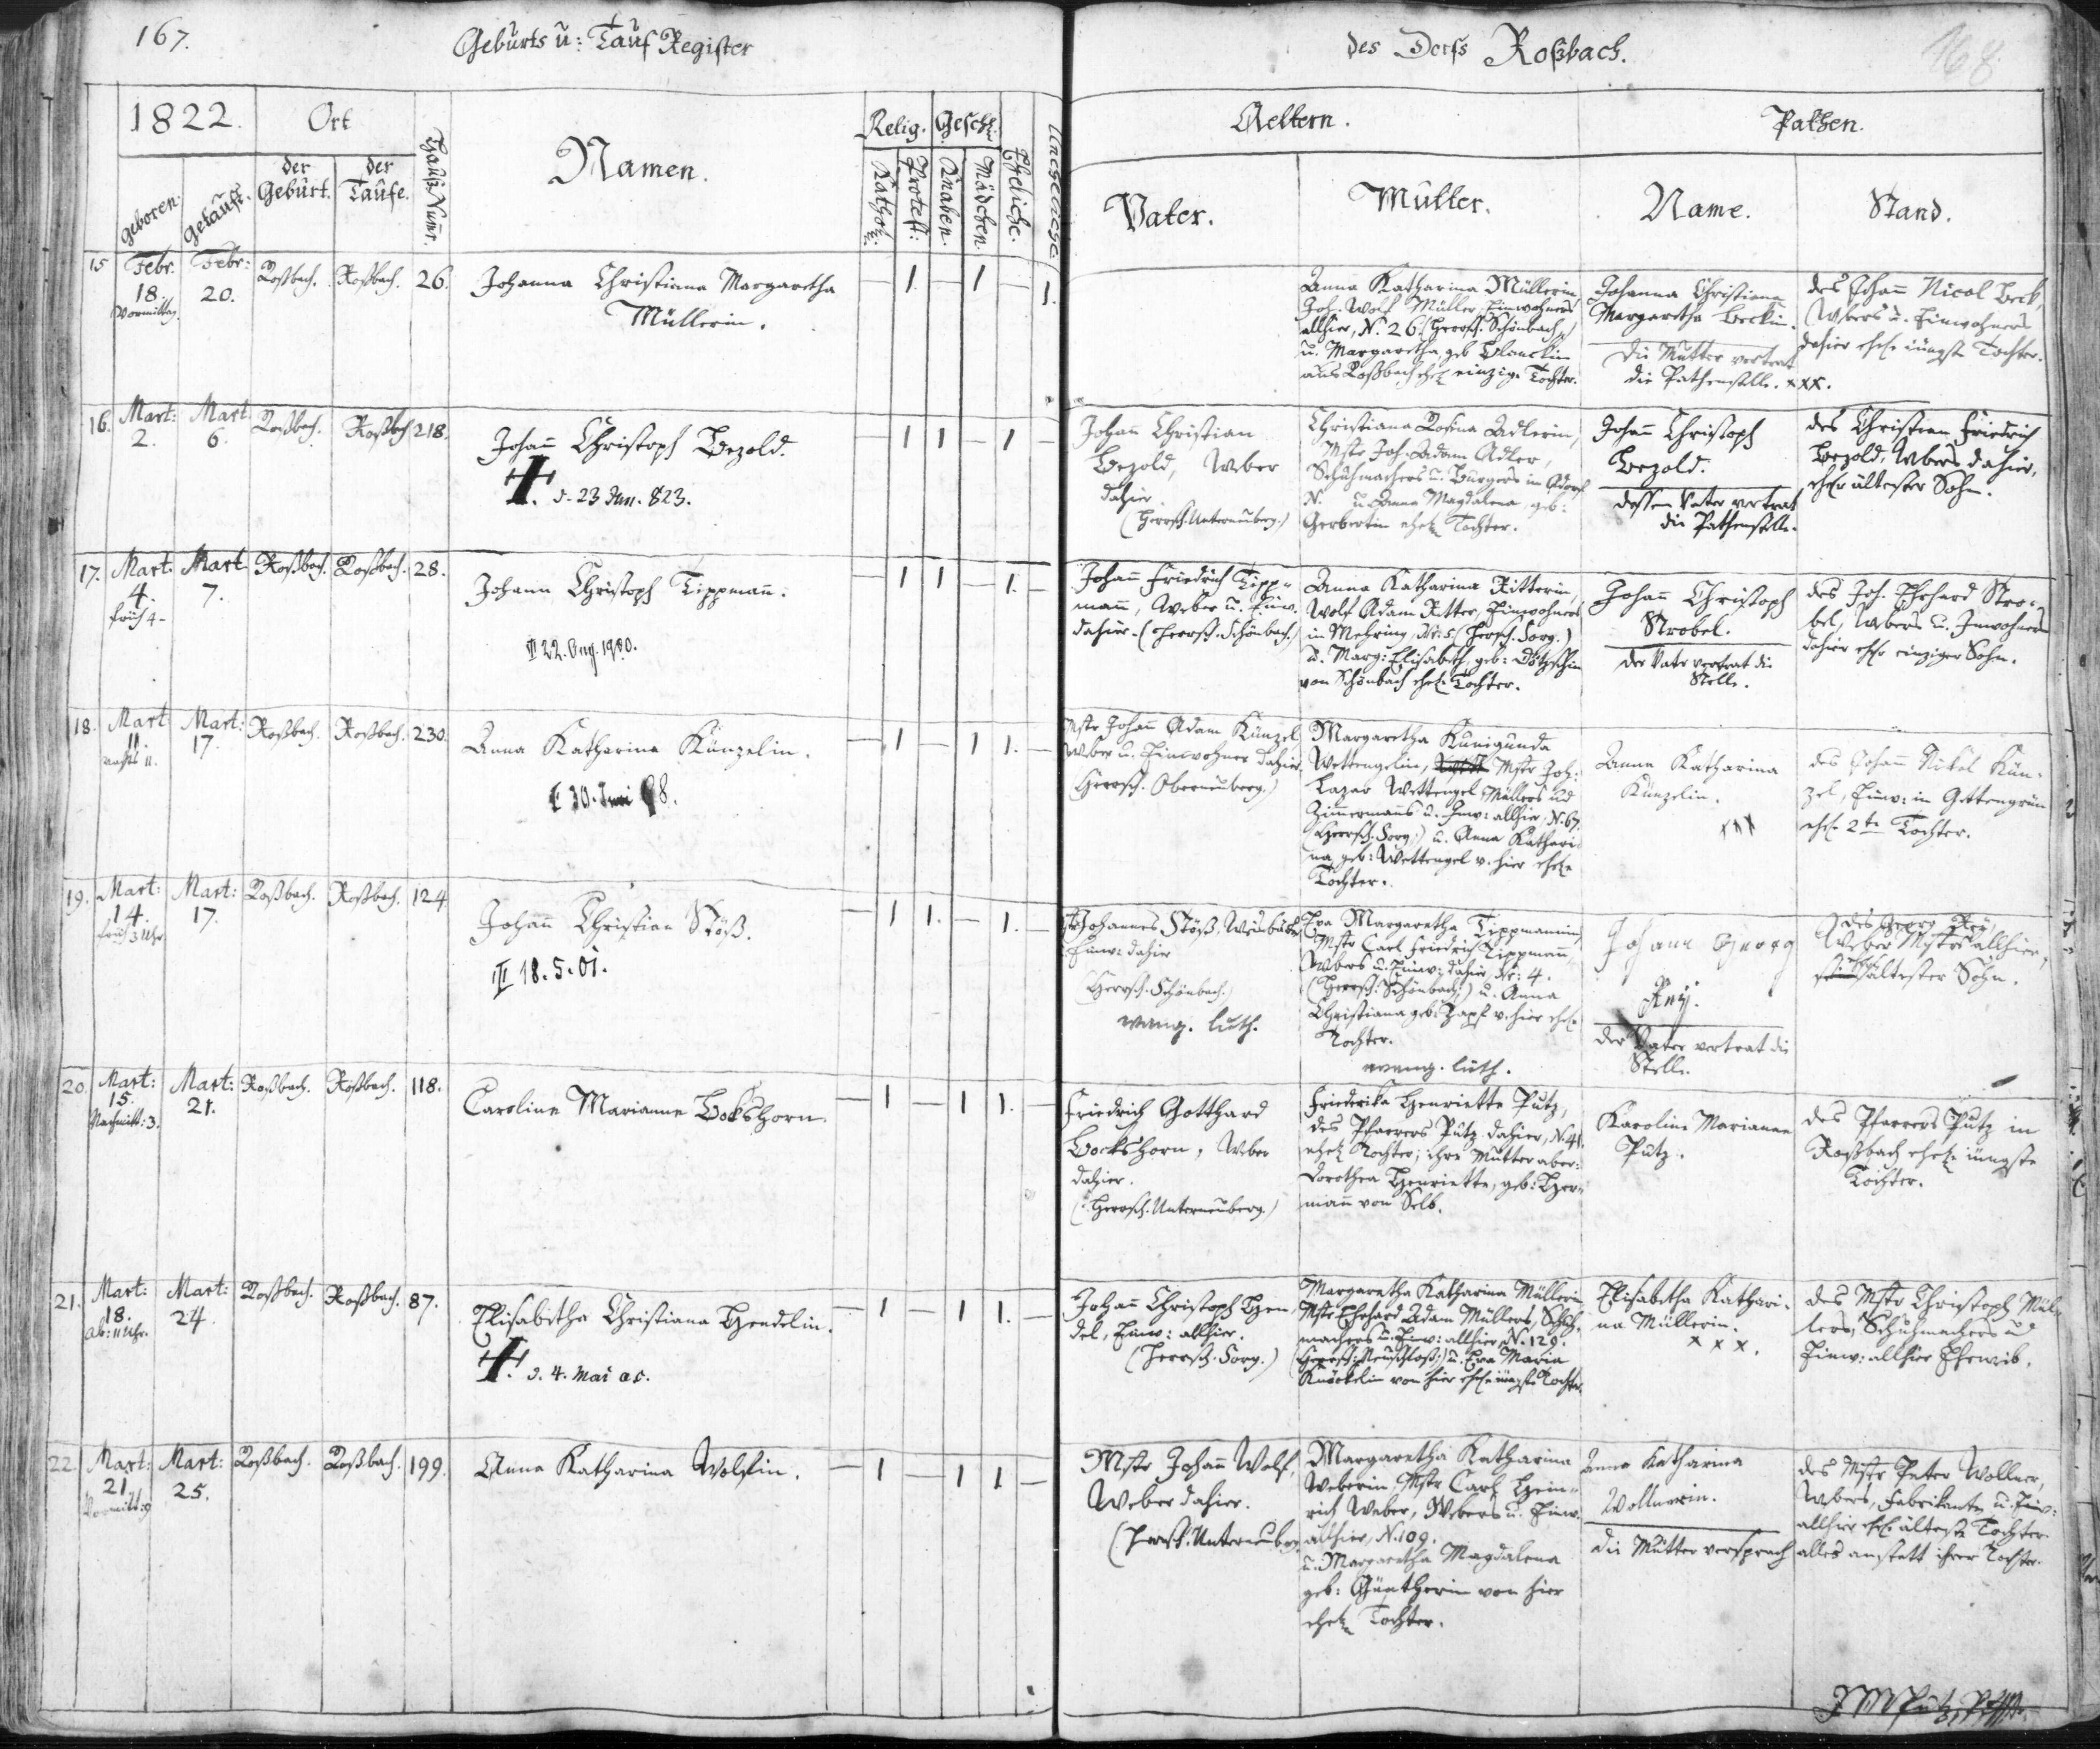 167.
Geburts u: Tauf Register
des Dorfs Roßbach.
168
1822.
Ort
Namen.
Relig.
Geschl:
Aeltern.
Pathen.
geboren.
getauft.
der Geburt.
der Taufe.
Hauß Numr.
Kathol:
Protest:
Knaben.
Mädchen.
Eheliche.
Uneheliche
Vater.
Mutter.
Name.
Stand.
15 Febr. 18. Vormittag. Febr: 20. Roßbach. Roßbach. 26.
Johanna Christiana Margaretha
Müllerin.
— 1 — 1 — 1.
Anna Katharina Müllerin,
Joh. Wolf Müller, Einwohners
allhier, N. 26. (Herrsch. Schönbach,)
u. Margaretha, geb. Blanckin
aus Roßbach ehel. einzige Tochter.
Johanna Christiana
Margaretha Beckin.
Die Mutter vertrat
die Pathenstelle. xxx.
des Johann Nicol Beck,
Webers u. Einwohners
dahier ehel. jüngste Tochter.
16. Mart: 2. Mart. 6. Roßbach. Roßbach 218.
Johann Christoph Bezold.
d. 23 Jan. 823.
— 1 1 — 1 —
Johann Christian
Bezold, Weber
dahier.
(Herrsch. Unterneuberg.)
Christiana Rosina Adlerin,
Mstr Joh. Adam Adler,
Schuhmachers u. Bürgers in Adorf
N. u. Anna Magdalena geb:
Gerbertin ehel. Tochter.
Johann Christoph
Bezold.
dessen Vater vertrat
die Pathenstelle.
des Christian Friedrich
Bezold, Webers dahier,
ehel. ältester Sohn.
17. Mart: 4. früh 4- Mart. 7. Roßbach. Roßbach. 28.
Johann Christoph Tippmann.
22. Aug. 1900.
— 1 1 — 1. —
Johann Friedrich Tipp-
mann, Weber u. Einw.
dahier. (Herrsch. Schönbach.)
Anna Katharina Ritterin,
Wolf Adam Ritter, Einwohners
in Mehring, Nr. 5 (Herrsch. Sorg.)
u. Marg: Elisabeth, geb:
von Schönbach ehel. Tochter.
Johann Christoph
Strobel.
der Vater vertrat die
Stelle.
des Joh. Ehrhard Stro-
bel, Webers u. Inwohners
dahier ehel. einziger Sohn.
18. Mart. 11. nachts 11. Mart: 17. Roßbach. Roßbach. 230.
Anna Katharina Künzelin.
30. Juni 98.
— 1 — 1 1. —
Mstr Johann Adam Künzel
Weber u. Einwohner dahier.
(Herrsch. Oberneuberg.)
Margaretha Kunigunda
Wettengelin, Mstr Joh:
Lazar Wettengel, Müllers und
Zimmermanns u. Einw: allhier, N. 67.
(Herrsch. Sorg.) u. Anna Kathari-
na, geb: Wettengel v. hier ehel.
Tochter.
Anna Katharina
Künzelin.
xxx
des Johann Nikol Kün-
zel, Einw: in Gottengrün
ehel. 2te Tochter.
19. Mart: 14. früh 3 Uhr Mart: 17. Roßbach. Roßbach. 124
Johann Christian Stöß.
18. 5. 01.
— 1 1. — 1. —
Johannes Stöß, Weisbäcker
Einw: dahier
(Herrsch. Schönbach.)
evang. luth.
Eva Margaretha Tippmannin,
Mstr Carl Friedrich Tippmann,
Webers u. Einw: dahier, Nr: 4.
(Herrsch: Schönbach,) u. Anna
Christiana geb: Zapf v. hier ehel.
Tochter.
evang. luth.
Johann Georg
der Vater vertrat die
Stelle.
des Georg
Weber Mstrs allhier,
ältester Sohn.
20. Mart: 15. Nachmitt: 3. Mart: 21. Roßbach. Roßbach. 118.
Caroline Marianne Bokshorn.
— 1 — 1 1. —
Friedrich Gotthard
Bockshorn, Weber
dahier.
(Herrsch. Unterneuberg.)
Friederika Henriette Putz,
des Pfarrers Putz dahier, N. 41.
ehel. Tochter; ihre Mutter aber:
Dorothea Henriette, geb: Her-
mann von Selb.
Karoline Marianne
Putz.
des Pfarrers Putz in
Roßbach ehel. jüngste
Tochter.
21. Mart: 18. Ab: 11 Uhr. Mart: 24. Roßbach. Roßbach. 87.
Elisabetha Christiana Hendelin.
d. 4. Mai a.c.
— 1 — 1 1. —
Johann Christoph Hen-
del, Einw: allhier.
(Herrsch. Sorg.)
Margaretha Katharina Müllerin,
Mstr Ehrhard Adam Müllers, Schuh-
machers u. Einw: allhier, N. 129.
(Herrsch: Neuschloß,) u. Eva Maria
Knöckelin von hier ehel. jüngste Tochter.
Elisabetha Kathari-
na Müllerin.
x x x.
des Mstr Christoph Mül-
lers, Schuhmachers und
Einw: allhier Eheweib.
22. Mart: 21. Vormitt: 9 Mart: 25. Roßbach. Roßbach. 199.
Anna Katharina Wolfin.
— 1 1 1 —
Mstr Johann Wolf,
Weber dahier.
(Herrsch. Unterneuberg.
Margaretha Katharina
Weberin, Mstr Carl Hein-
rich Weber, Webers u. Einw.
allhier, N. 109.
u. Margaretha Magdalena
geb: Güntherin von hier
ehel. Tochter.
Anna Katharina
Wollnerin.
die Mutter versprach
des Mstr Peter Wollner,
Webers, Fabrikants u. Einw:
allhier ehel. älteste Tochter.
alles anstatt ihrer Tochter.